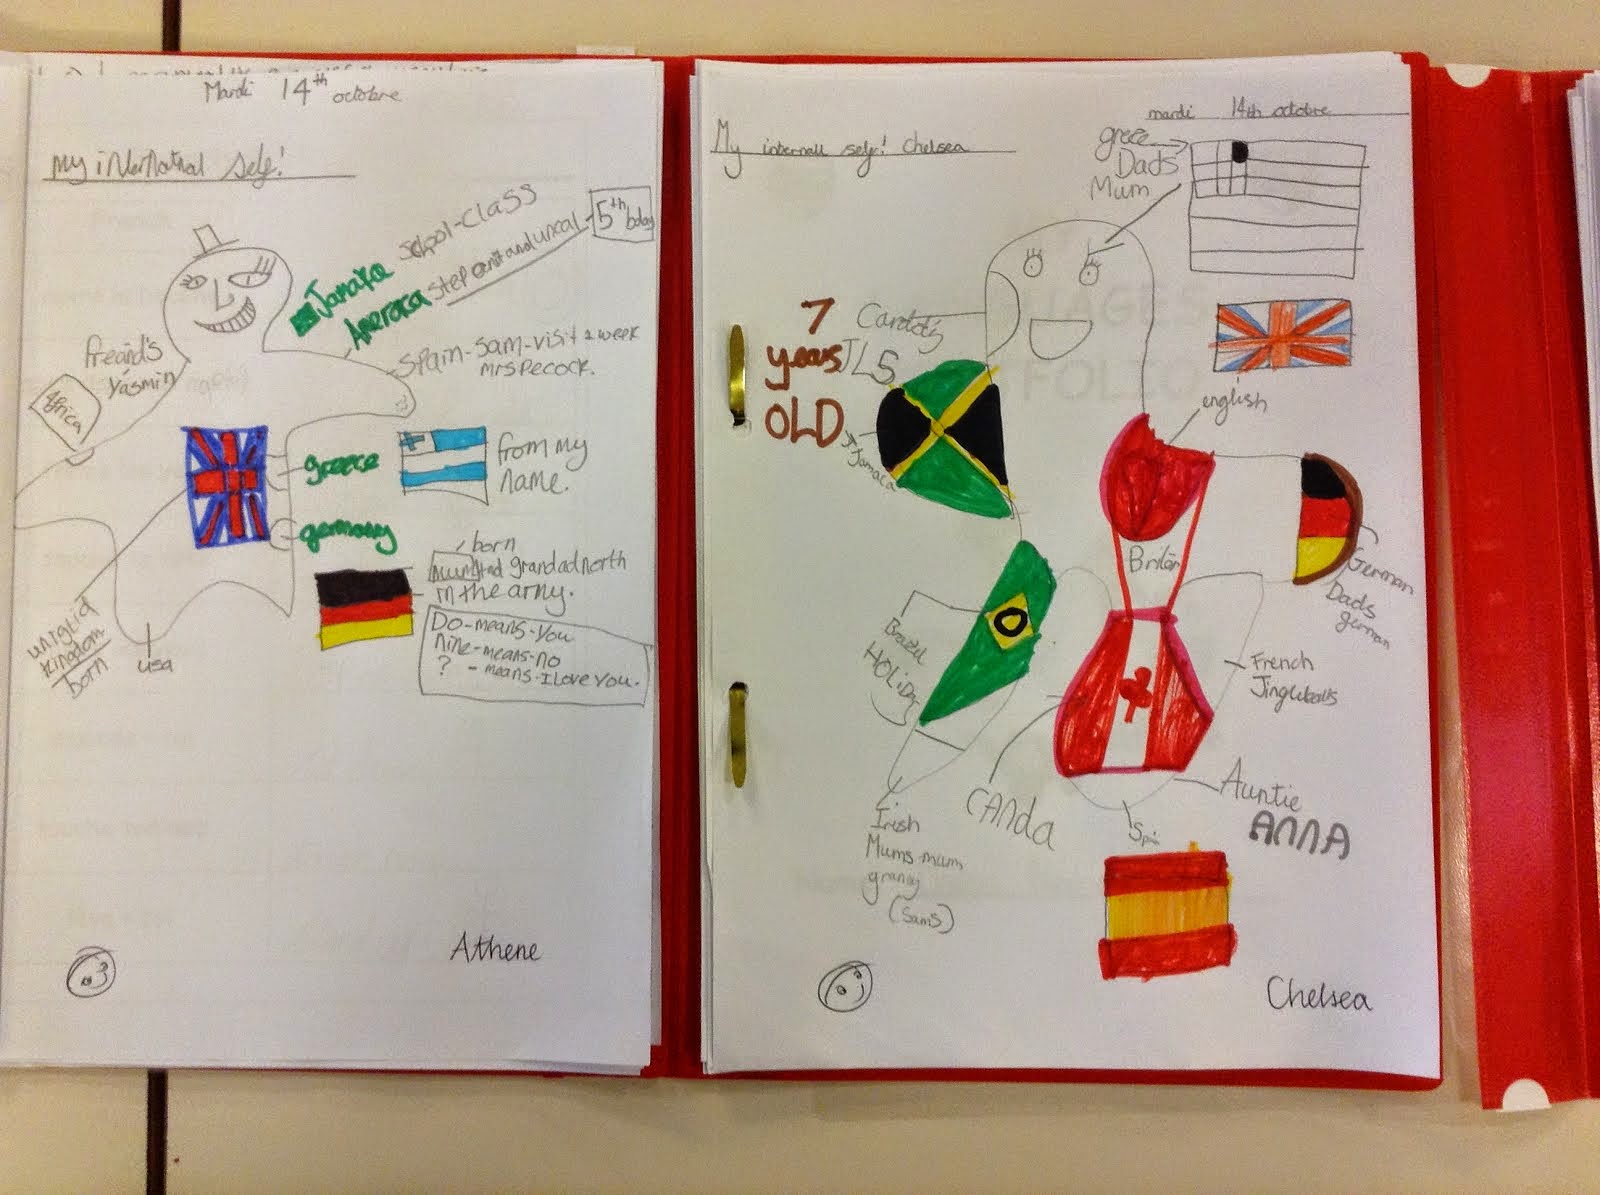 Mardi 14th octobre
my internatnal self!
Jamaica school-class
Ameraca step anit and uncal
5th bday
freand's
Yasmin
Africa
Spain-Sam-visit 2 week
mrs Pecock.
greece
from my
name.
germany
born
grandad north
in the army.
Do-means-you
nine-means-no
? -means-I Love You.
kingdom
born
usa
Athene
mardi 14th octobre
My self! Chelsea
greec
Dads
Mum
7
years
OLD
JLS
Jamaca
english
Briten
German
Dads
german
Brazil
HOLiDay
French
Jinglebells
CANDA
Auntie
ANNA
Spin
Irish
Mums mum
grancy
(Sams)
Chelsea